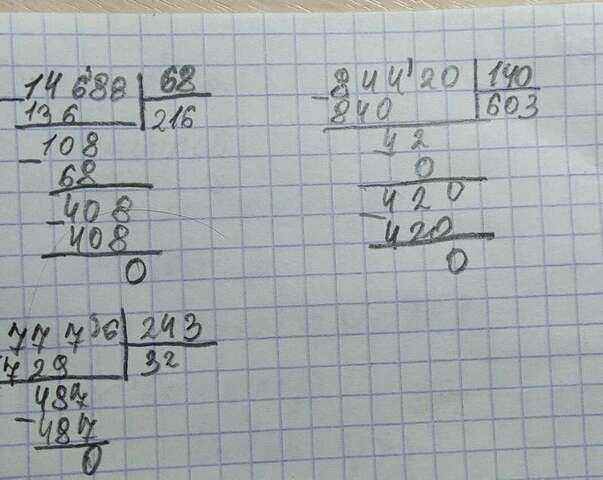 14 688 68
- 136 216
- 108
68
- 408
408
0
84420 140
- 840 603
42
0
- 420
420
0
7776 243
729 32
487
- 487
0